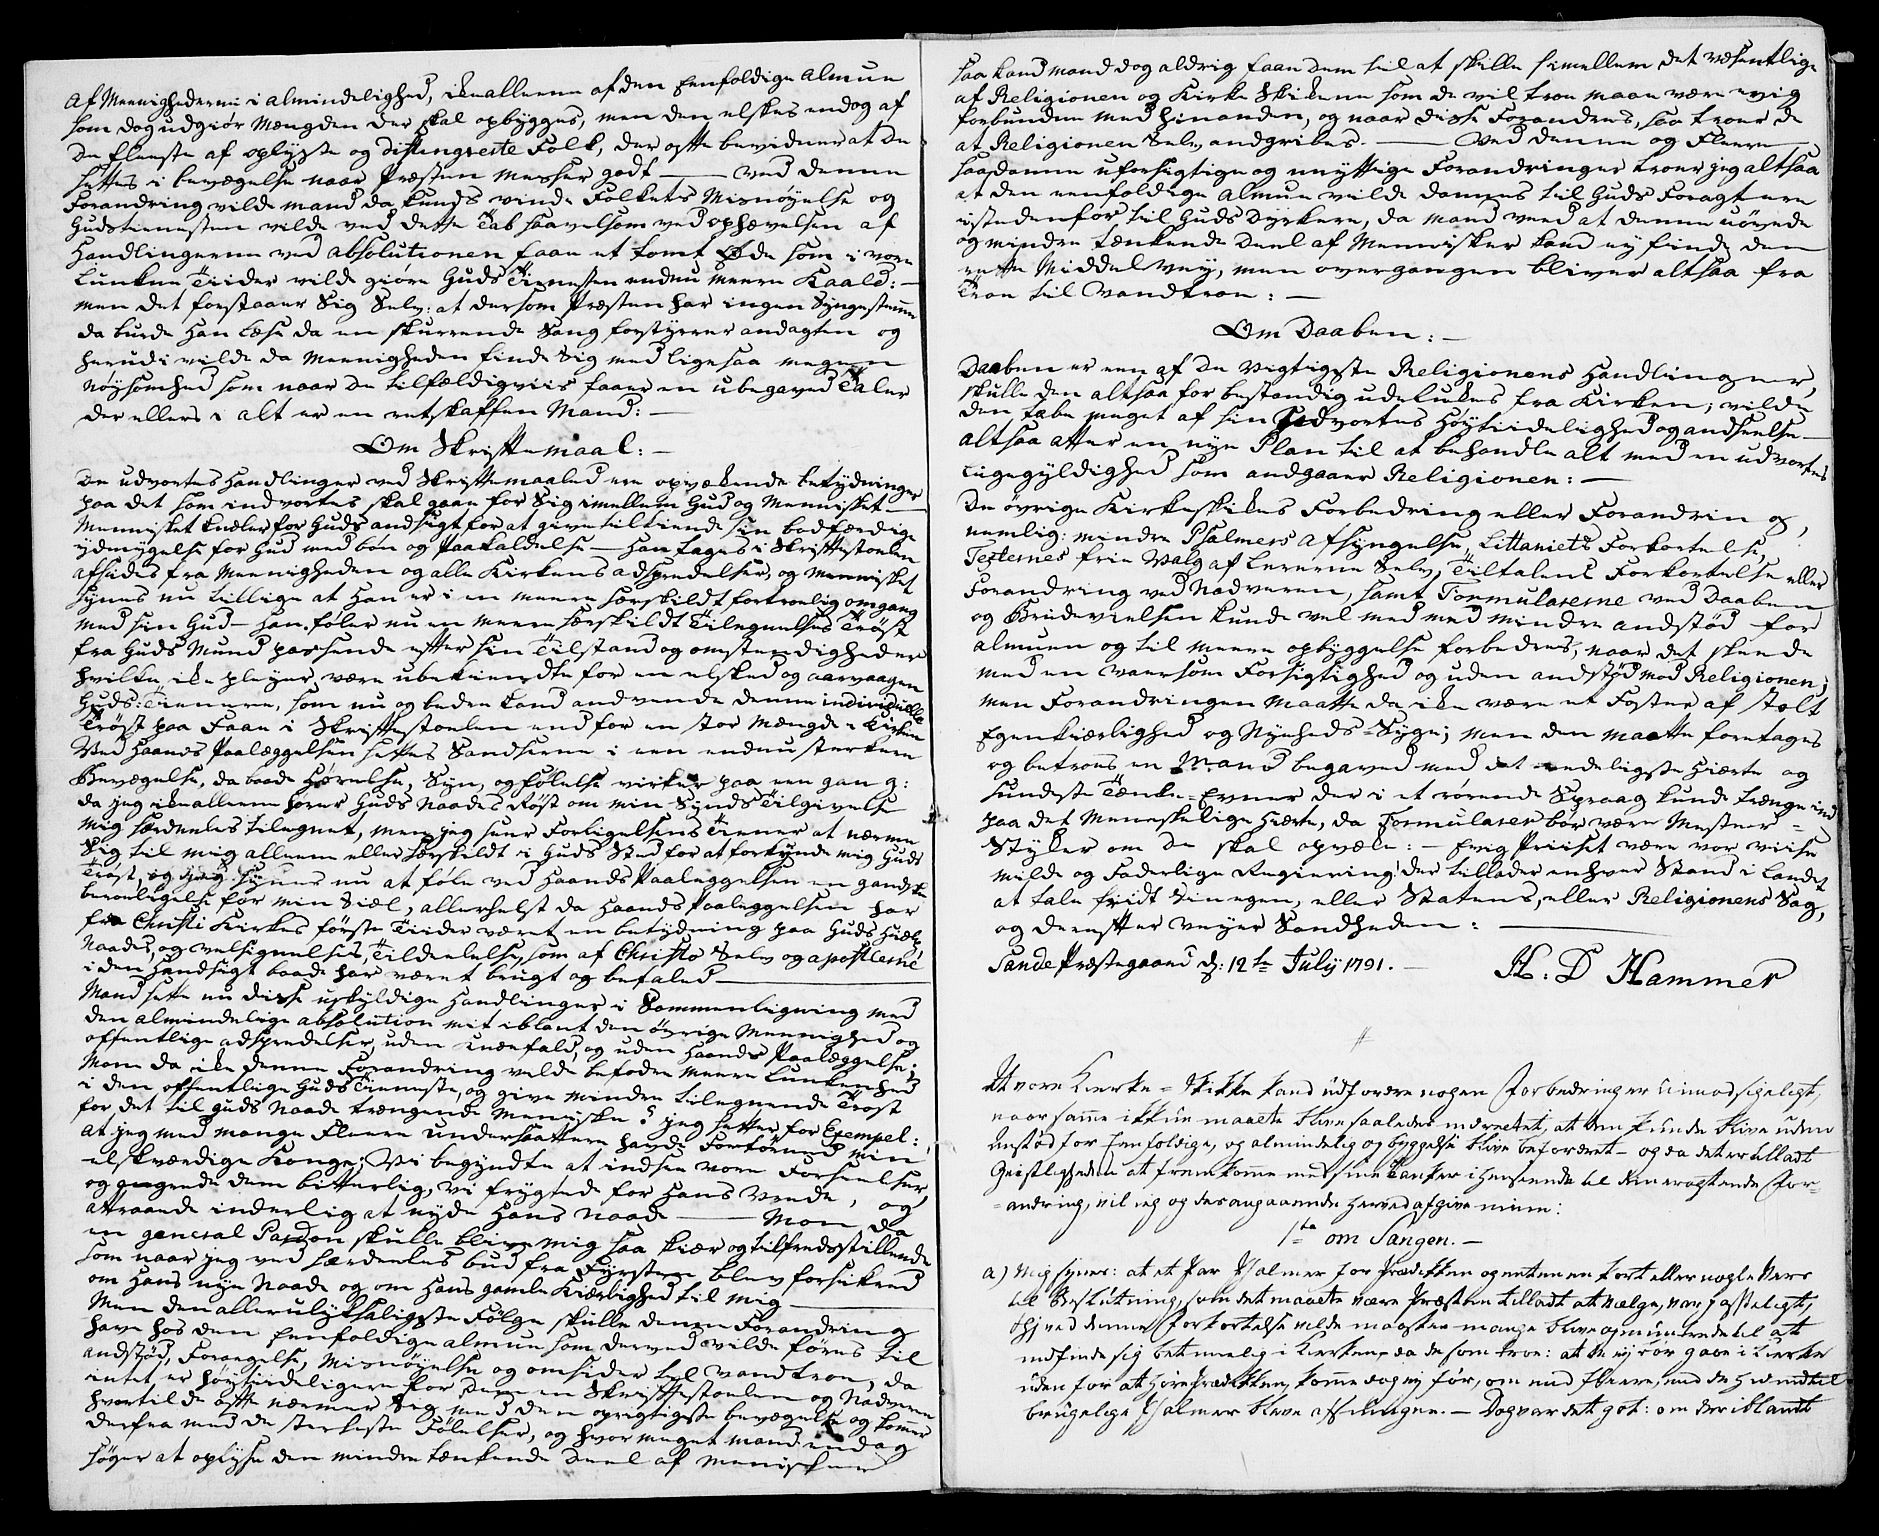 af Meenighederne i almindelighed, ikke alleene af den Eenfoldige Almue
som dog udgiør Mængden der skal opbygges, men den elskes endog af
de fleeste af oplyste og distingverte Folk, der ofte bevidner at de
settes i bevægelse naar Præsten Messer godt — ved denne
Forandring vilde mand da kuns vinde Folkets Misnøyelse og
Gudstienesten vilde ved dette Tab saavelsom ved ophævelsen af
Handlingerne ved Absolutionen faae et tomt Øde som i vore
Lunkne Tiider vilde giøre Guds Tienesten endnu meere Kaald: —
men det forstaaer Sig Selv: at dersom Præsten har ingen Syngestemme
da burde han læse da en skurrende Sang forstyrrer andagten og
herudi vilde da Meenigheden finde Sig med ligesaa megen
Nøysomhed som naar de tilfældigviis faaer en ubegaved Taler
der ellers i alt er en retskaffen Mand: —
Om Skriftemaal: —
De udvortes Handlinger ved Skriftemaalet ere opvækkende betydninger
paa det som indvortes skal gaae for Sig imellem Gud og Mennisket —
Mennisket knæler for Guds andsigt for at give tilkiende sin bodfærdige
ydmygelse for Gud med bøn og Paakaldelse — han tages i Skriftestoelen
afsides fra Meenigheden og alle Kirkens adspredelser, og Mennisket
synes nu tillige at han er i en meere særskildt fortroelig omgang
med sin Gud — han føler nu en meere særskildt Tilegnelses Trøst
fra Guds Mund passende efter sin Tilstand og omstændigheder
hvilke ikke pleyer være ubekiendte for en elsket og aarvaagen
Guds Tiennere, som nu og beder kand andvende denne individuelle
Trøst paa Faae i Skriftestoelen end for en stor Mængde i Kirken
Ved Haands Paalæggelsen settes Sandserne i een endnu sterkere
Bevægelse, da baade Hørelse, Syn, og følelse virker paa een gang:
da jeg ikke alleene hører Guds Naades Røst om min Synds Tilgivelse
mig særdeeles tilegnet, men jeg seer Forligelsens Tiener at nærme
Sig til mig alleene eller særskildt i Guds Sted for at forkynde mig Guds
Trøst, og jeg synes nu at føle ved Haands Paaleggelsen en gandske
beroeligelse for min Siæl, allerhelst da Haands Paaleggelsen har
fra Christi Kirkes første Tiider været en betydning paa Guds Hielp
Naades, og velsignelses, Tildeelelse, som af Christo Selv og apostlerne
i den Hændsigt baade har været brugt og befalet —
Mand sette nu disse uskyldige Handlinger i Sammenligning med
den almindelige absolution mit iblant den øvrige Meenighed og
offentlige adspredelser, uden Knæefald, og uden Haands Paalæggelse;
Mon da ikke denne Forandring vilde befodre meere Lunkenhed
i den offentlige Guds Tieneste, og give mindre tilegnende Trøst
for det til Guds Naade trængende Menniske? jeg setter for Exempel:
at jeg med mange Fleere undersaattere havde Fortørned min
elskværdige Konge; Vi begyndte at indsee vore Forseelser,
og angrede dem bitterlig, vi frygtede for Hans Vrede, og
attraaede inderlig at nyde Hans Naade — Mon da
en general Pardon skulle blive mig saa kiær og tilfredsstillende
som naar jeg ved særdeeles bud fra Fyrsten blev forsikred
om Hans nye Naade og om Hans gamle Kiærlighed til mig —
Men den allerulyksaligste Følge skulle denne Forandring
have hos den Eenfoldige almue som derved vilde føres til
andstød, Forargelse, Misnøyelse og omsider til Vandtroe, da
intet er høytideligere for dem en Skriftestoelen og Nadveren
hvortil de ofte nærmer Seg med den oprigtigste bevægelse og kommer
derfra med de sterkeste Følelser, og hvor meget mand endog
søger at oplyse den mindre tænkende Deel af Mennisker
saa kand mand dog aldrig faae dem til at skille imellem det væsentlige
af Religionen og Kirke Skikkene som de vil troe maae være evig
forbunden med hinanden, og naar disse Forandres, saa troer de
at Religionen Selv andgribes. — Ved denne og Fleere
saadanne uforsigtige og unyttige Forandringer troer jeg altsaa
at den eenfoldige Almue vilde dannes til Guds Foragtere
istedenfor til Guds Dyrkere, da mand veed at denne uøvede
og mindre tænkende Deel af Mennisker kand ey finde den
rette Middel Vey, men overgangen bliver altsaa fra
Troe til Vandtroe: —
Om Daaben: —
Daaben er een af de Vigtigste Religionens Handlinger,
skulle den altsaa for bestandig udelukkes fra Kirken; vilde
den tabe meget af sin Udvortes Høytidelighed og andseelse —
altsaa atter en nye Plan til at behandle alt med en udvortes
Ligegyldighed som andgaaer Religionen: —
De øvrige Kirkeskikkes Forbedring eller Forandring,
nemlig: mindre Psalmers Afsyngelse, Littaniets Forkortelse,
Texternes frie Valg af Lærerne Selv, Tiltalens Forkortelse eller
Forandring ved Nadveren, samt Formularerne ved Daaben
og Brudevielsen kunde vel med med mindre andstød for
almuen og til meere opbyggelse forbedres, naar det skeede
med en varsom Forsigtighed og uden andstød mod Religionen;
men Forandringen maatte da ikke være et Foster af stolt
Egenkiærlighed og Nyheds-Syge; men den maatte foretages
og betroes en Mand begaved med det ædeligste Hierte og
sundeste Tænke-Evner der i et rørende Spraag kunde trænge ind
paa det Menneskelige Hierte, da Formularer bør være Mester-
Stykker om de skal opvække: — Evig Priiset være vor viise
milde og Faderlige Regiering! der tillader enhver Stand i Landet
at tale fridt Sin egen, eller Statens, eller Religionens Sag,
og derefter veyer Sandheden: —
Sande Præstegaard d: 12te July 1791. — H: D Hammer
At vore Kierke-Skikke kand udfordre nogen Forbedring er uimodsigeligt,
naar samme ikkun maatte blive saaledes indrettet, at den kunde blive uden
anstød for Eenfoldige, og almindelig opbyggelse blive befordret — og da det er tilladt
Geistligheden at fremkomme med sine Tanker i henseende til den eragtende For-
-andring, vil ieg og desangaaende herved afgive mine:
1te om Sangen. —
a) Mig synes: at et Par Psalmer for Prædikken og enten en kort eller nogle Vers
til Beslutning, som det maatte være Præsten tilladt at vælge, var passeligt,
thj ved denne Forkortelse vilde maaskee mange blive opmuntrede til at
indfinde sig betimelig i Kierken, da de som troe: at de ey bør gaae i Kierke
uden for at høre Prædikken, komme dog ey før, om end fleere, end de hidindtil
brugelige Psalmer bleve afsiungne. — Dog var det got: om der iblandt